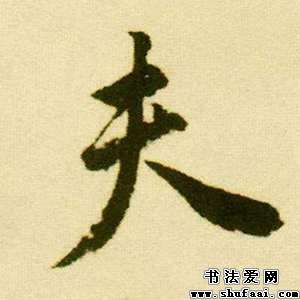 夫
书法爱网
www.shufaai.com